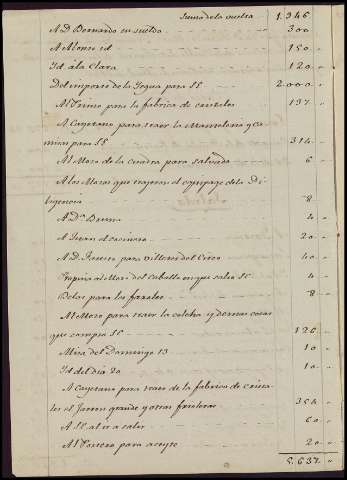 Suma de la vuelta 1.346
A D. Bernardo su sueldo 300
A Alonso id 150 "
Id. á la Clara 120 "
Del importe de la Yegua para SE 2.000 "
Al Primo para la fabrica de cristales 137 "
A Cayetano para traer la Manteleria y ca
mias para SE 314 "
Al Mozo de la cuadra para salvado 6 "
A los Mozos que trageron el equipage de la Di
ligencia 8 "
A D.ª Bruna 4 "
A Juan el cocinero 20 "
A D. para villetes del Circo 40 "
Propina al Mozo del Caballo en que salio SE 4 "
Belas para los faroles 8 "
Al Mozo para traer la colcha y demas cosas
que compro SE 126 "
Misa del Domingo 13 10 "
Id. del dia 20 10 "
A Cayetano para traer de la fabrica de crista
les el Jarron grande y otras fruleras 354 "
A SE al ir a salir 60 "
Al Portero para aceyte 20 "
5.637 "